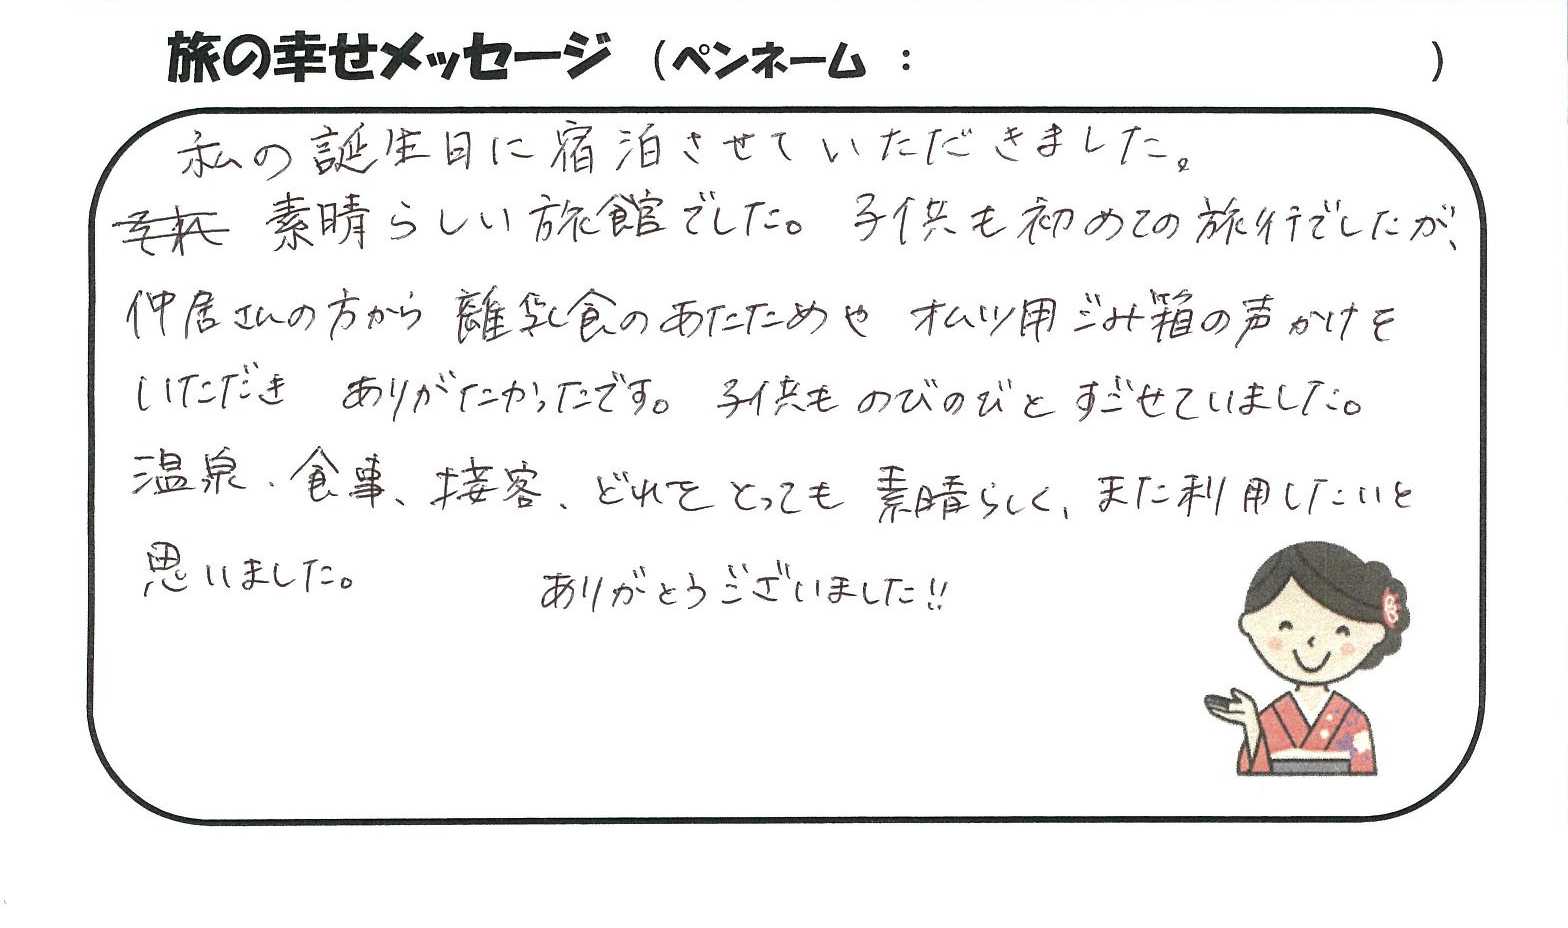 旅の幸せメッセージ （ペンネーム ： ）
私の誕生日に宿泊させていただきました。
それ 素晴らしい旅館でした。 子供も初めての旅行でしたが、
仲居さんの方から 離乳食のあたためや オムツ用ゴミ箱の声かけを
いただき ありがたかったです。 子供も のびのびと すごせていました。
温泉、食事、接客、どれをとっても 素晴らしく、また利用したいと
思いました。 ありがとうございました!!